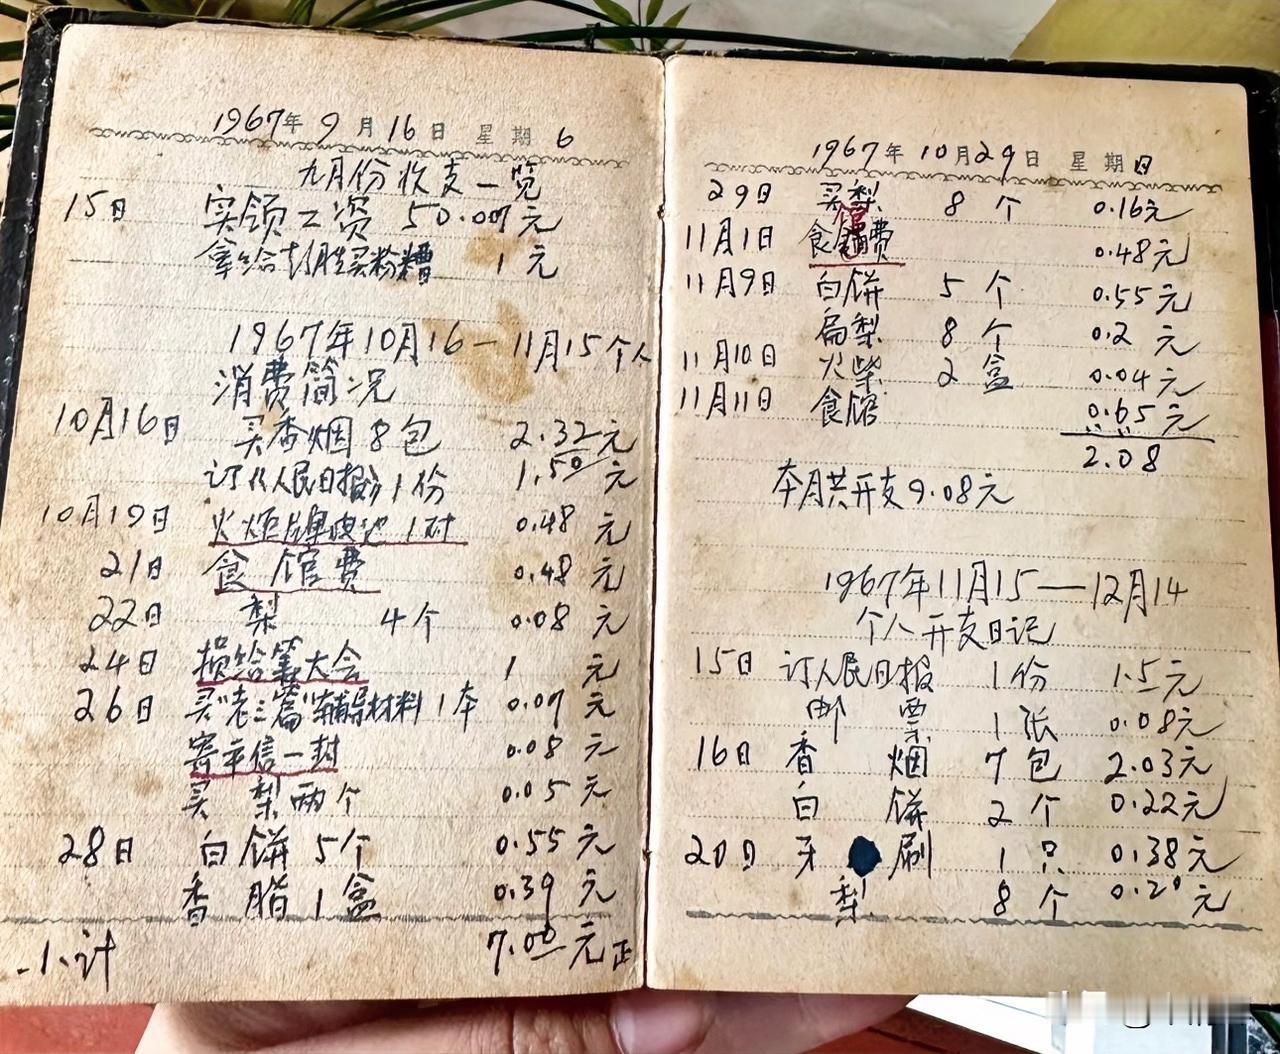 1967年9月16日 星期6
九月份收支一览
15日 实领工资 50.00元
拿给 买粉糟 1元
1967年10月16—11月15个人
消费简况
10月16日 买香烟8包 2.32元
订 人民日报 1份 1.50元
10月19日 火炬牌电池1对 0.48元
21日 食馆费 0.48元
22日 梨 4个 0.08元
24日 损给筹大会 1元
26日 买"老三篇"辅导材料1本 0.07元
寄平信一封 0.08元
买梨两个 0.05元
28日 白饼5个 0.55元
香脂1盒 0.39元
小计 7.00元正
1967年10月29日 星期日
29日 买梨 8个 0.16元
11月1日 食馆费 0.48元
11月9日 白饼 5个 0.55元
扁梨 8个 0.2元
11月10日 火柴 2盒 0.04元
11月11日 食馆 0.65元
2.08
本月共开支9.08元
1967年11月15——12月14
个人开支日记
15日 订人民日报 1份 1.5元
邮票 1张 0.08元
16日 香烟 7包 2.03元
白饼 2个 0.22元
20日 牙刷 1只 0.38元
梨 8个 0.20元